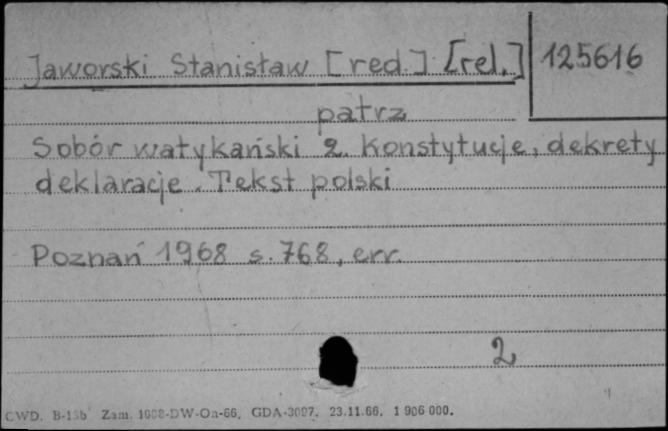 Jaworski Stanisław [red.] [rel.] 125616
patrz
Sobór watykański 2. Konstytucje, dekrety
deklaracje. Tekst polski
Poznań 1968 s. 768, err.
2
CWD. B-15b Zam. 1088-DW-On-66. GDA-3097. 23.11.66. 1 906 000.